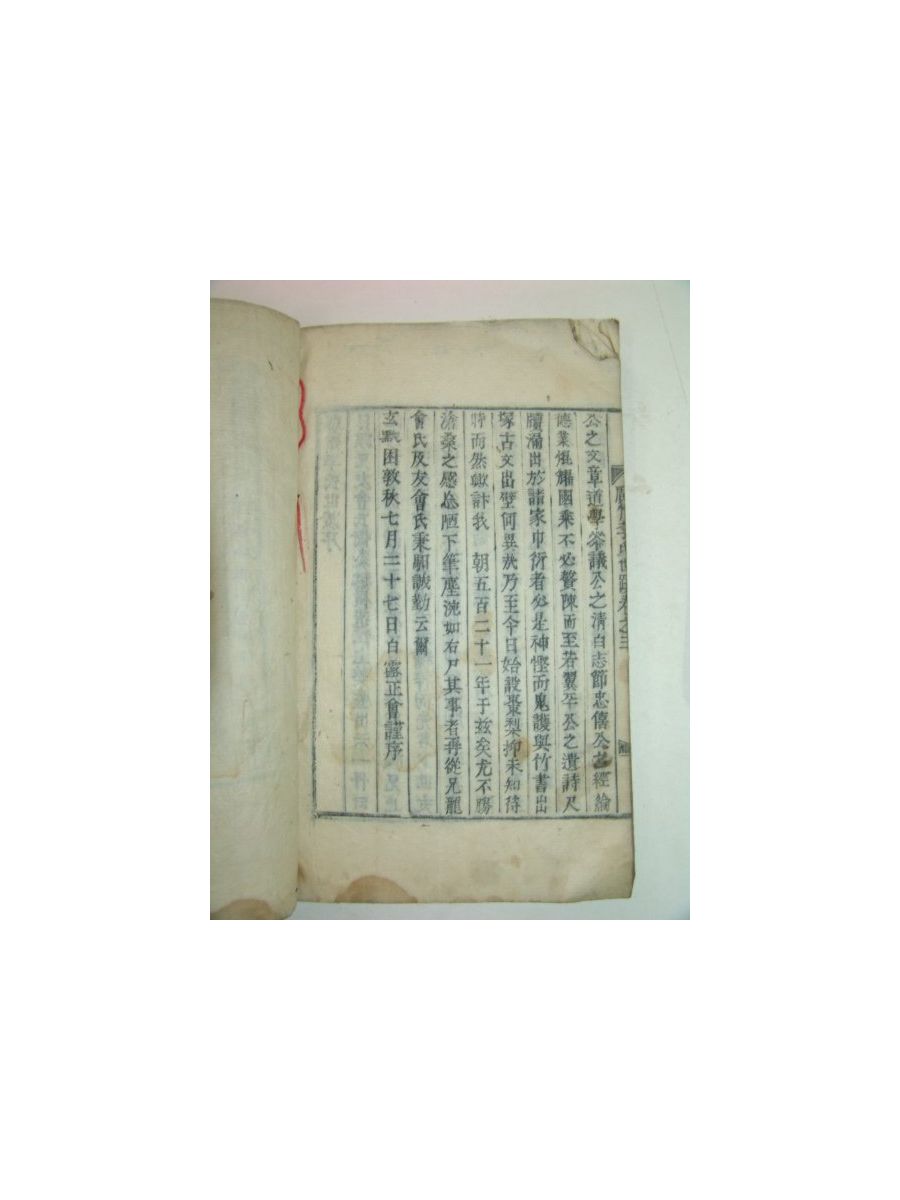 李氏世蹟卷之三
公之文章道學參議公之清白志節忠僖公之經綸
德業焜耀國乘不必贅陳而至若翼平公之遺詩尺
牘滿出於諸家巾衍者必是神慳而鬼護與竹書出
塚古文出壁何異哉乃至今日始設棗梨抑未知待
時而然歟計我 朝五百二十一年于玆矣尤不勝
滄桑之感忘陋下筆塵涴如右尸其事者再從兄龍
會氏及友會氏秉昭誠勤云爾
玄黓困敦秋七月二十七日白露正會謹序